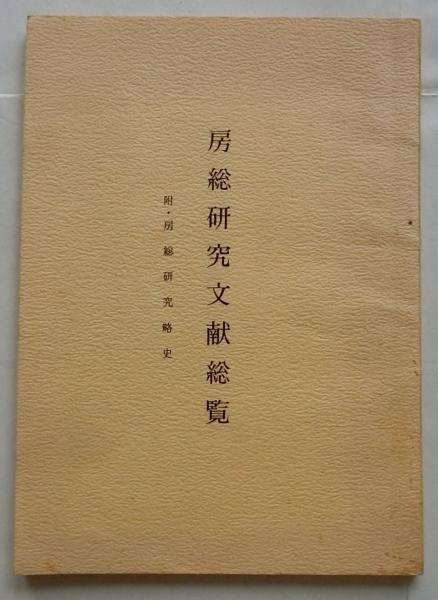 房総研究文献総覧
附・房総研究略史